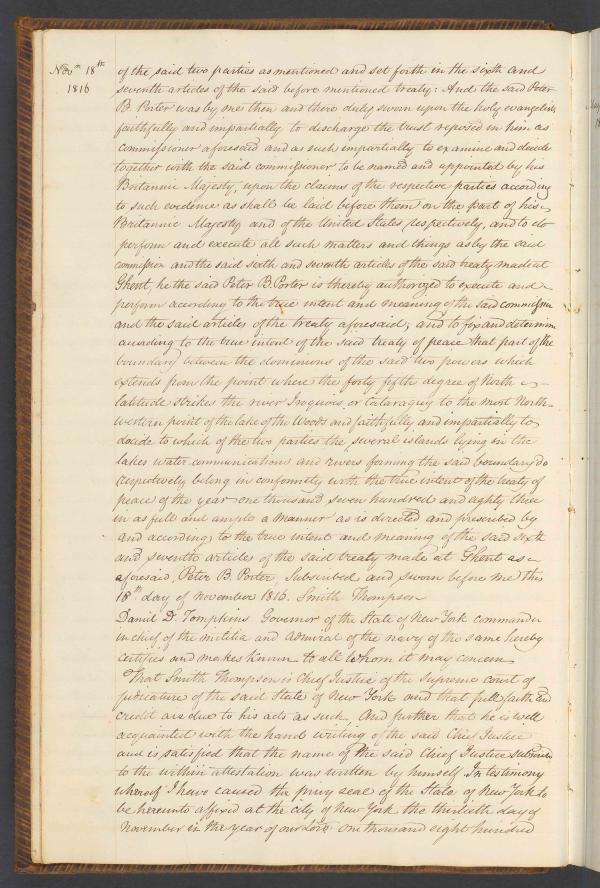 Novm 18th
1816
of the said two parties as mentioned and set forth in the sixth and
seventh articles of the said before mentioned treaty: And the said Peter
B. Porter was by me then and there duly sworn upon the holy evangelists
faithfully and impartially to discharge the trust reposed in him as
commissioner aforesaid and as such impartially to examine and decide
together with the said commissioner to be named and appointed by his
Britannic Majesty, upon the claims of the respective parties according
to such evidence as shall be laid before them on the part of his
Britannic Majesty and of the United States respectively, and to do
perform and execute all such matters and things as by the said
commission and the said sixth and seventh articles of the said treaty made at
Ghent, he the said Peter B. Porter is thereby authorized to execute and
perform according to the true intent and meaning of the said commission
and the said articles of the treaty aforesaid; and to fix and determin
according to the true intent of the said treaty of peace that part of the
boundary between the dominions of the said two powers which
extends from the point where the forty fifth degree of North
latitude strikes the river Iroquois or Cataraquy to the most North-
western point of the lake of the Woods and faithfully and impartially to
decide to which of the two parties the several islands lying in the
lakes water communications and rivers forming the said boundary do
respectively belong in conformity with the true intent of the treaty of
peace of the year one thousand seven hundred and eighty three
in as full and ample a manner as is directed and prescribed by
and according to the true intent and meaning of the said sixth
and seventh article of the said treaty made at Ghent as
aforesaid, Peter B. Porter, Subscribed and sworn before me this
18th day of november 1816. Smith Thompson
Daniel D. Tompkins Governor of the State of New York commander
in chief of the militia and admiral of the navy of the same hereby
certifies and makes known to all whom it may concern
That Smith Thompson is Chief Justice of the Supreme court of
judicature of the said State of New York and that full faith and
credit are due to his acts as such, And further that he is well
acquainted with the hand writing of the said Chief Justice
and is satisfied that the name of the said Chief Justice subscribed
to the within attestation was written by himself In testimony
whereof I have caused the privy seal of the State of New York to
be hereunto affixed at the city of New York the thirtieth day of
November in the year of our Lord one thousand eight hundred